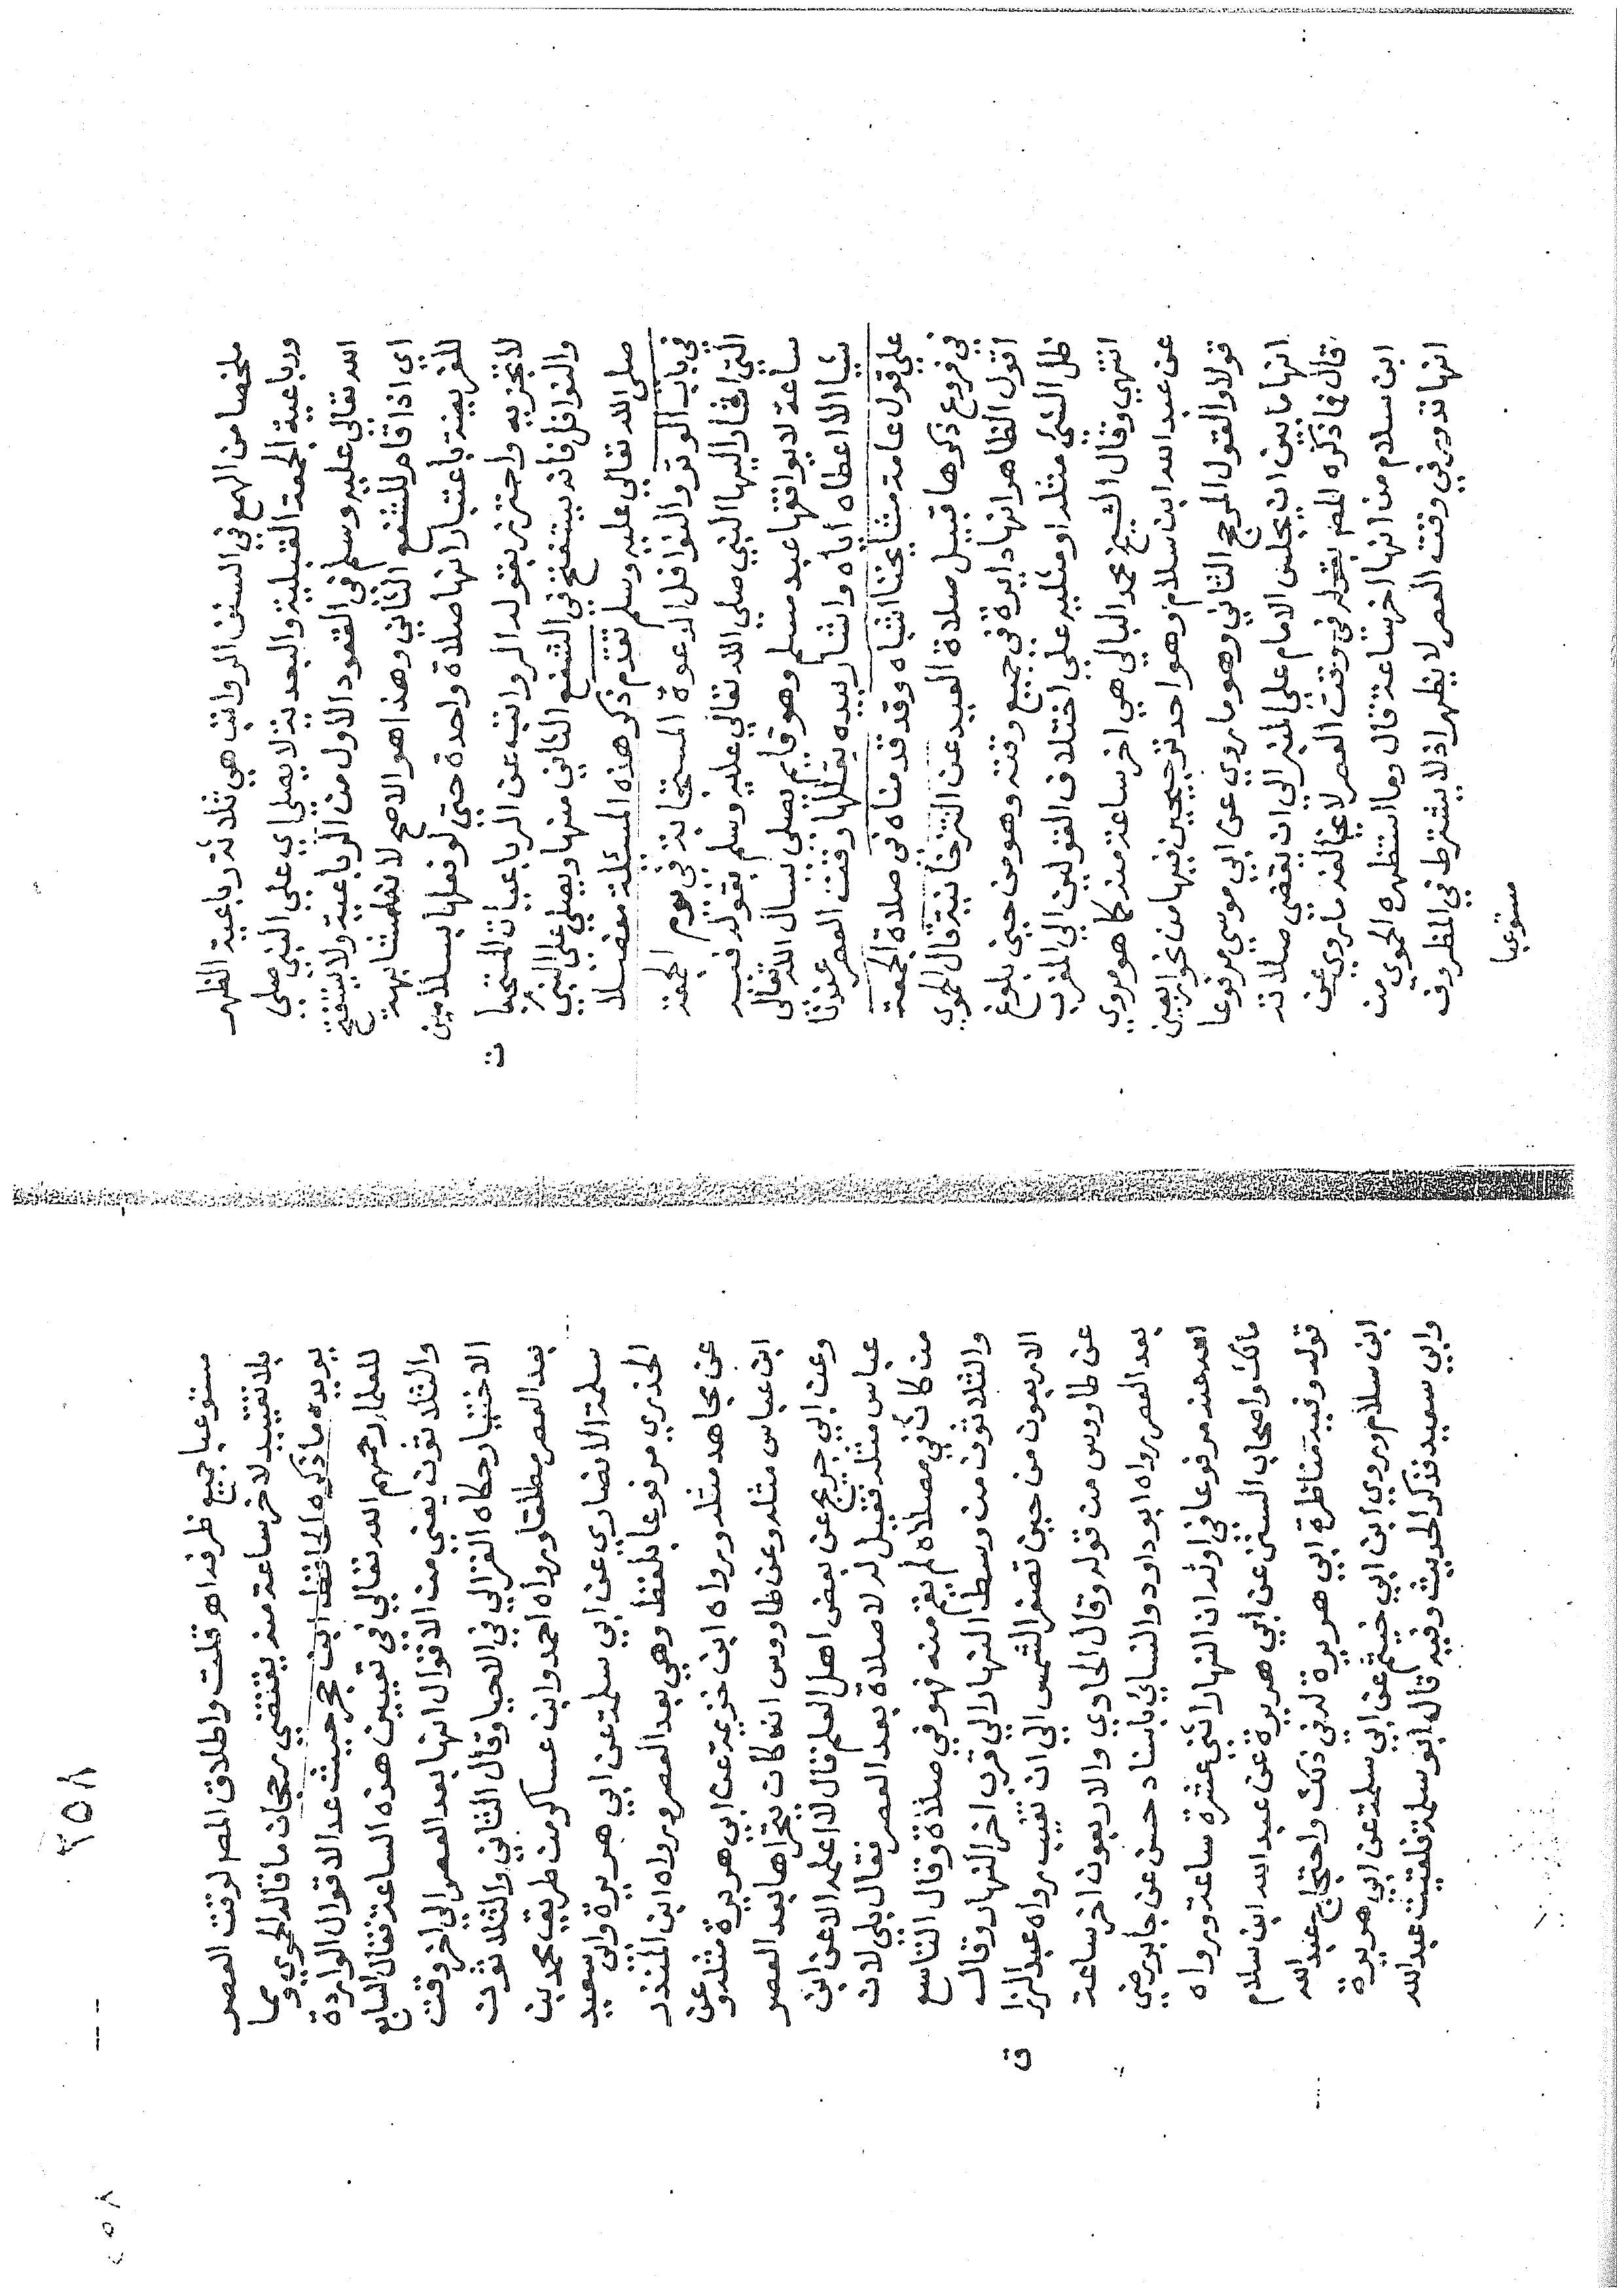 ملخصا من الهمع في السنن الرواتب هي ثلاثة رباعية الظهر
ورباعية الجمعة القبلية والبعدية لا يصلي اي على النبي صلى
الله تعالى عليه وسلم في القعود الاول من الرباعية ولا يستفتح
اي اذا قام للشفع الثاني وهذا هو الاصح لانها مشابهة
للفريضة باعتبار انها صلاة واحدة حتى لو فعلها بسلامين
لا تجزيه واحترز بقوله الرواتبه عن الرباعيات المستحبا
ت
والنوافل فانه يستفتح في الشفع الثاني منها ويصلي على النبي
صلى الله تعالى عليه وسلم تقدم ذكر هذه المسئلة مفصلا
في باب الوتر والنوافل الدعوة المستجابة في يوم الجمعة
التي اشار اليها النبي صلى الله تعالى عليه وسلم بقوله فيه
ساعة لا يوافقها عبد مسلم وهو قايم يصلي يسال الله تعالى
شيا الا اعطاه اياه واشار بيده يقللها وقت العصر عندنا
على قول عامة مشايخنا اشباه وقد قدمناه في صلاة الجمعة
في فروع ذكرها قبيل صلاة العيد عن التترخانية قال الحموي
اقول الظاهر انها دايرة في جميع وقته وهو من حين بلوغ
ظل الشئ مثله او مثليه على اختلاف القولين الي المغرب
انتهى وقال الشيخ محمد البالي هي اخر ساعة منه كما هو مروي
عن عبد الله ابن سلام وهو احد ترجيحين فيها من نحو اربعين
قولا والقول المرجح الثاني وهو ما روي عن ابي موسي مرفوعا
انها ما بين ان يجلس الامام علي المنبر الي ان يقضي صلاته
قال فما ذكره المص بقوله في وقت العصر لا يخالفه ما روي عن
ابن سلام من انها اخر ساعة قال وما استظهره الحموي من
انها تدور في وقت العصر لا يظهر اذ لا يشترط في المظروف
مستوعبا
٣٥٨
مستوعبا جميع ظرفه اهر قلت واطلاق المصر لوقت العصر
بلا تقييد لاخر ساعة منه يقتضي رجحان ما قاله الحموي ومما
يويده ما ذكره الحافظ ابن حجر حيث عد الاقوال الواردة
للعلما رحمهم الله تعالى في تعيين هذه الساعة فقال السابع
والثلاثون يعني من الاقوال انها بعد العصر الي اخر وقت
الاختيار حكاه الغزالي في الاحيا وقال الثاني والثلاثون
بعد العصر مطلقا ورواه احمد وابن عساكر من طريق محمد بن
سلمة الانصاري عن ابي سلمة عن ابي هريرة وابي سعيد
الخدري مرفوعا بلفظ وهي بعد العصر ورواه ابن المنذر
عن مجاهد مثله ورواه ابن خزيمة عن ابي هريرة مثله وعن
ابن عباس مثله وعن طاووس انه كان يتحراها بعد العصر
وعن ابي جريج عن بعض اهل العلم قال لا اعلمه الا عن ابن
عباس مثله فقيل له لا صلاة بعد العصر فقال بلى لان
من كان في مصلاه لم يقم منه فهو في صلاة وقال التاسع
والثلاثون من وسط النهار الي قرب اخر النهار وقال
الاربعون من حين تصفر الشمس الي ان تغيب رواه عبد الرزا
ق
عن طاووس من قوله وقال الحادي والاربعون اخر ساعة
بعد العصر رواه ابو داود والنسائي باسناد حسن عن جابر رضي
الله عنه مرفوعا في اوله ان النهار اثني عشرة ساعة ورواه
مالك واصحاب السنن عن ابي هريرة عن عبد الله ابن سلام
قوله وفيه مناظرة ابي هريرة له في ذلك واحتجاج عبد الله
ابن سلام وروي ابن ابي خيثم عن ابي سلمة عن ابي هريرة
وابي سعيد فذكر الحديث وفيه قال ابو سلمة فلقيت عبد الله